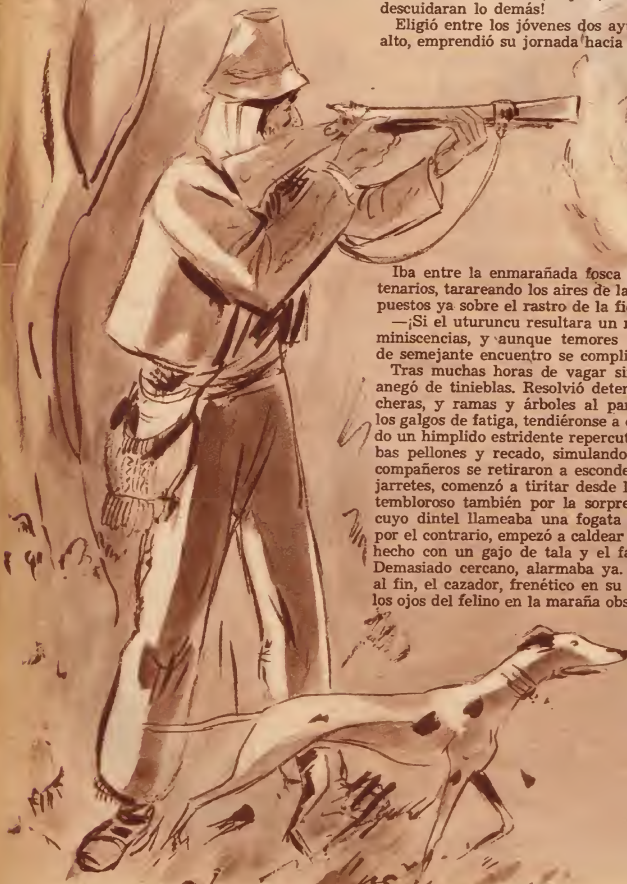 descuidaran lo demás!
Eligió entre los jóvenes dos ay
alto, emprendió su jornada hacia
Iba entre la enmarañada fosca
tenarios, tarareando los aires de la
puestos ya sobre el rastro de la fi
—¡Si el uturuncu resultara un
miniscencias, y aunque temores
de semejante encuentro se compli
Tras muchas horas de vagar si
anegó de tinieblas. Resolvió deter
cheras, y ramas y árboles al pa
los galgos de fatiga, tendiéronse a
do un himplido estridente repercut
bas pellones y recado, simulando
compañeros se retiraron a esconde
jarretes, comenzó a tiritar desde l
tembloroso también por la sorpre
cuyo dintel llameaba una fogata
por el contrario, empezó a caldear
hecho con un gajo de tala y el fa
Demasiado cercano, alarmaba ya.
al fin, el cazador, frenético en su
los ojos del felino en la maraña obs